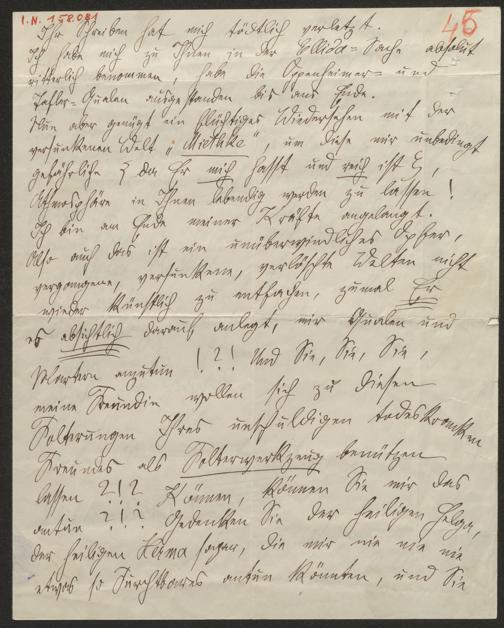 I.N. 158.081
45
Ihr Schreiben hat mich tödtlich verletzt.
Ich habe mich zu Ihnen in der Sache absolut
ritterlich benommen, habe die Oppenheimer= und
Qualen ausgestanden bis ans Ende.
Nun aber genügt ein flüchtiges Wiedersehen mit der
versunkenen Welt „Miethke“, um diese mir unbedingt
gefährliche { da Er mich hasst und reich ist },
Atmosphäre in Ihnen lebendig werden zu lassen!
Ich bin am Ende meiner Kräfte angelangt.
Also auch das ist ein unüberwindliches Opfer,
vergangene, versunkene, verlöschte Welten nicht
wieder künstlich zu entfachen, zumal Er
es absichtlich darauf anlegt, mir Qualen und
Martern anzutun !?! Und Sie, Sie, Sie,
meine Freundin wollen sich zu diesen
Folterungen Ihres unschuldigen todeskranken
Freundes als Folterwerkzeug benützen
lassen ?!? Können, können Sie mir das
antun ?!? Gedenken Sie der heiligen Helga,
der heiligen sogar, die mir nie nie nie
etwas so Furchtbares antun könnten, und Sie